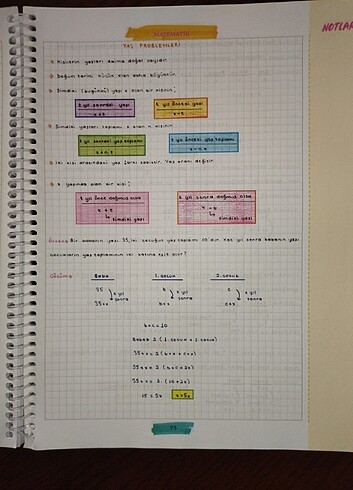 MATEMATİK
NOTLAR
YAŞ PROBLEMLERİ
Kişilerin yaşları daima doğal sayıdır.
Doğum tarihi küçük olan daha büyüktür.
Şimdiki (bugünkü) yaşı x olan bir kişinin;
t yıl sonraki yaşı
x+t
t yıl önceki yaşı
x-t
Şimdiki yaşları toplamı x olan n kişinin
t yıl sonraki yaş toplamı
x+n.t
t yıl önceki yaş toplamı
x-n.t
İki kişi arasındaki yaş farkı sabittir. Yaş oranı değişir.
x yaşında olan bir kişi;
t yıl önce doğmuş olsa
x+t
Şimdiki yaşı
t yıl sonra doğmuş olsa
x-t
Şimdiki yaşı
Bir babanın yaşı 35, iki çocuğun yaş toplamı 10'dur. Kaç yıl sonra babanın yaşı
çocukların yaş toplamının iki katına eşit olur?
Çözüm:
Baba 1. çocuk 2. çocuk
35 b c
x yıl sonra x yıl sonra x yıl sonra
35+x b+x c+x
b+c=10
Baba= 2 (1. çocuk + 2. çocuk)
35+x = 2 (b+x+c+x)
35+x = 2 (b+c+2x)
35+x = 2. (10+2x)
15 = 3x x=5